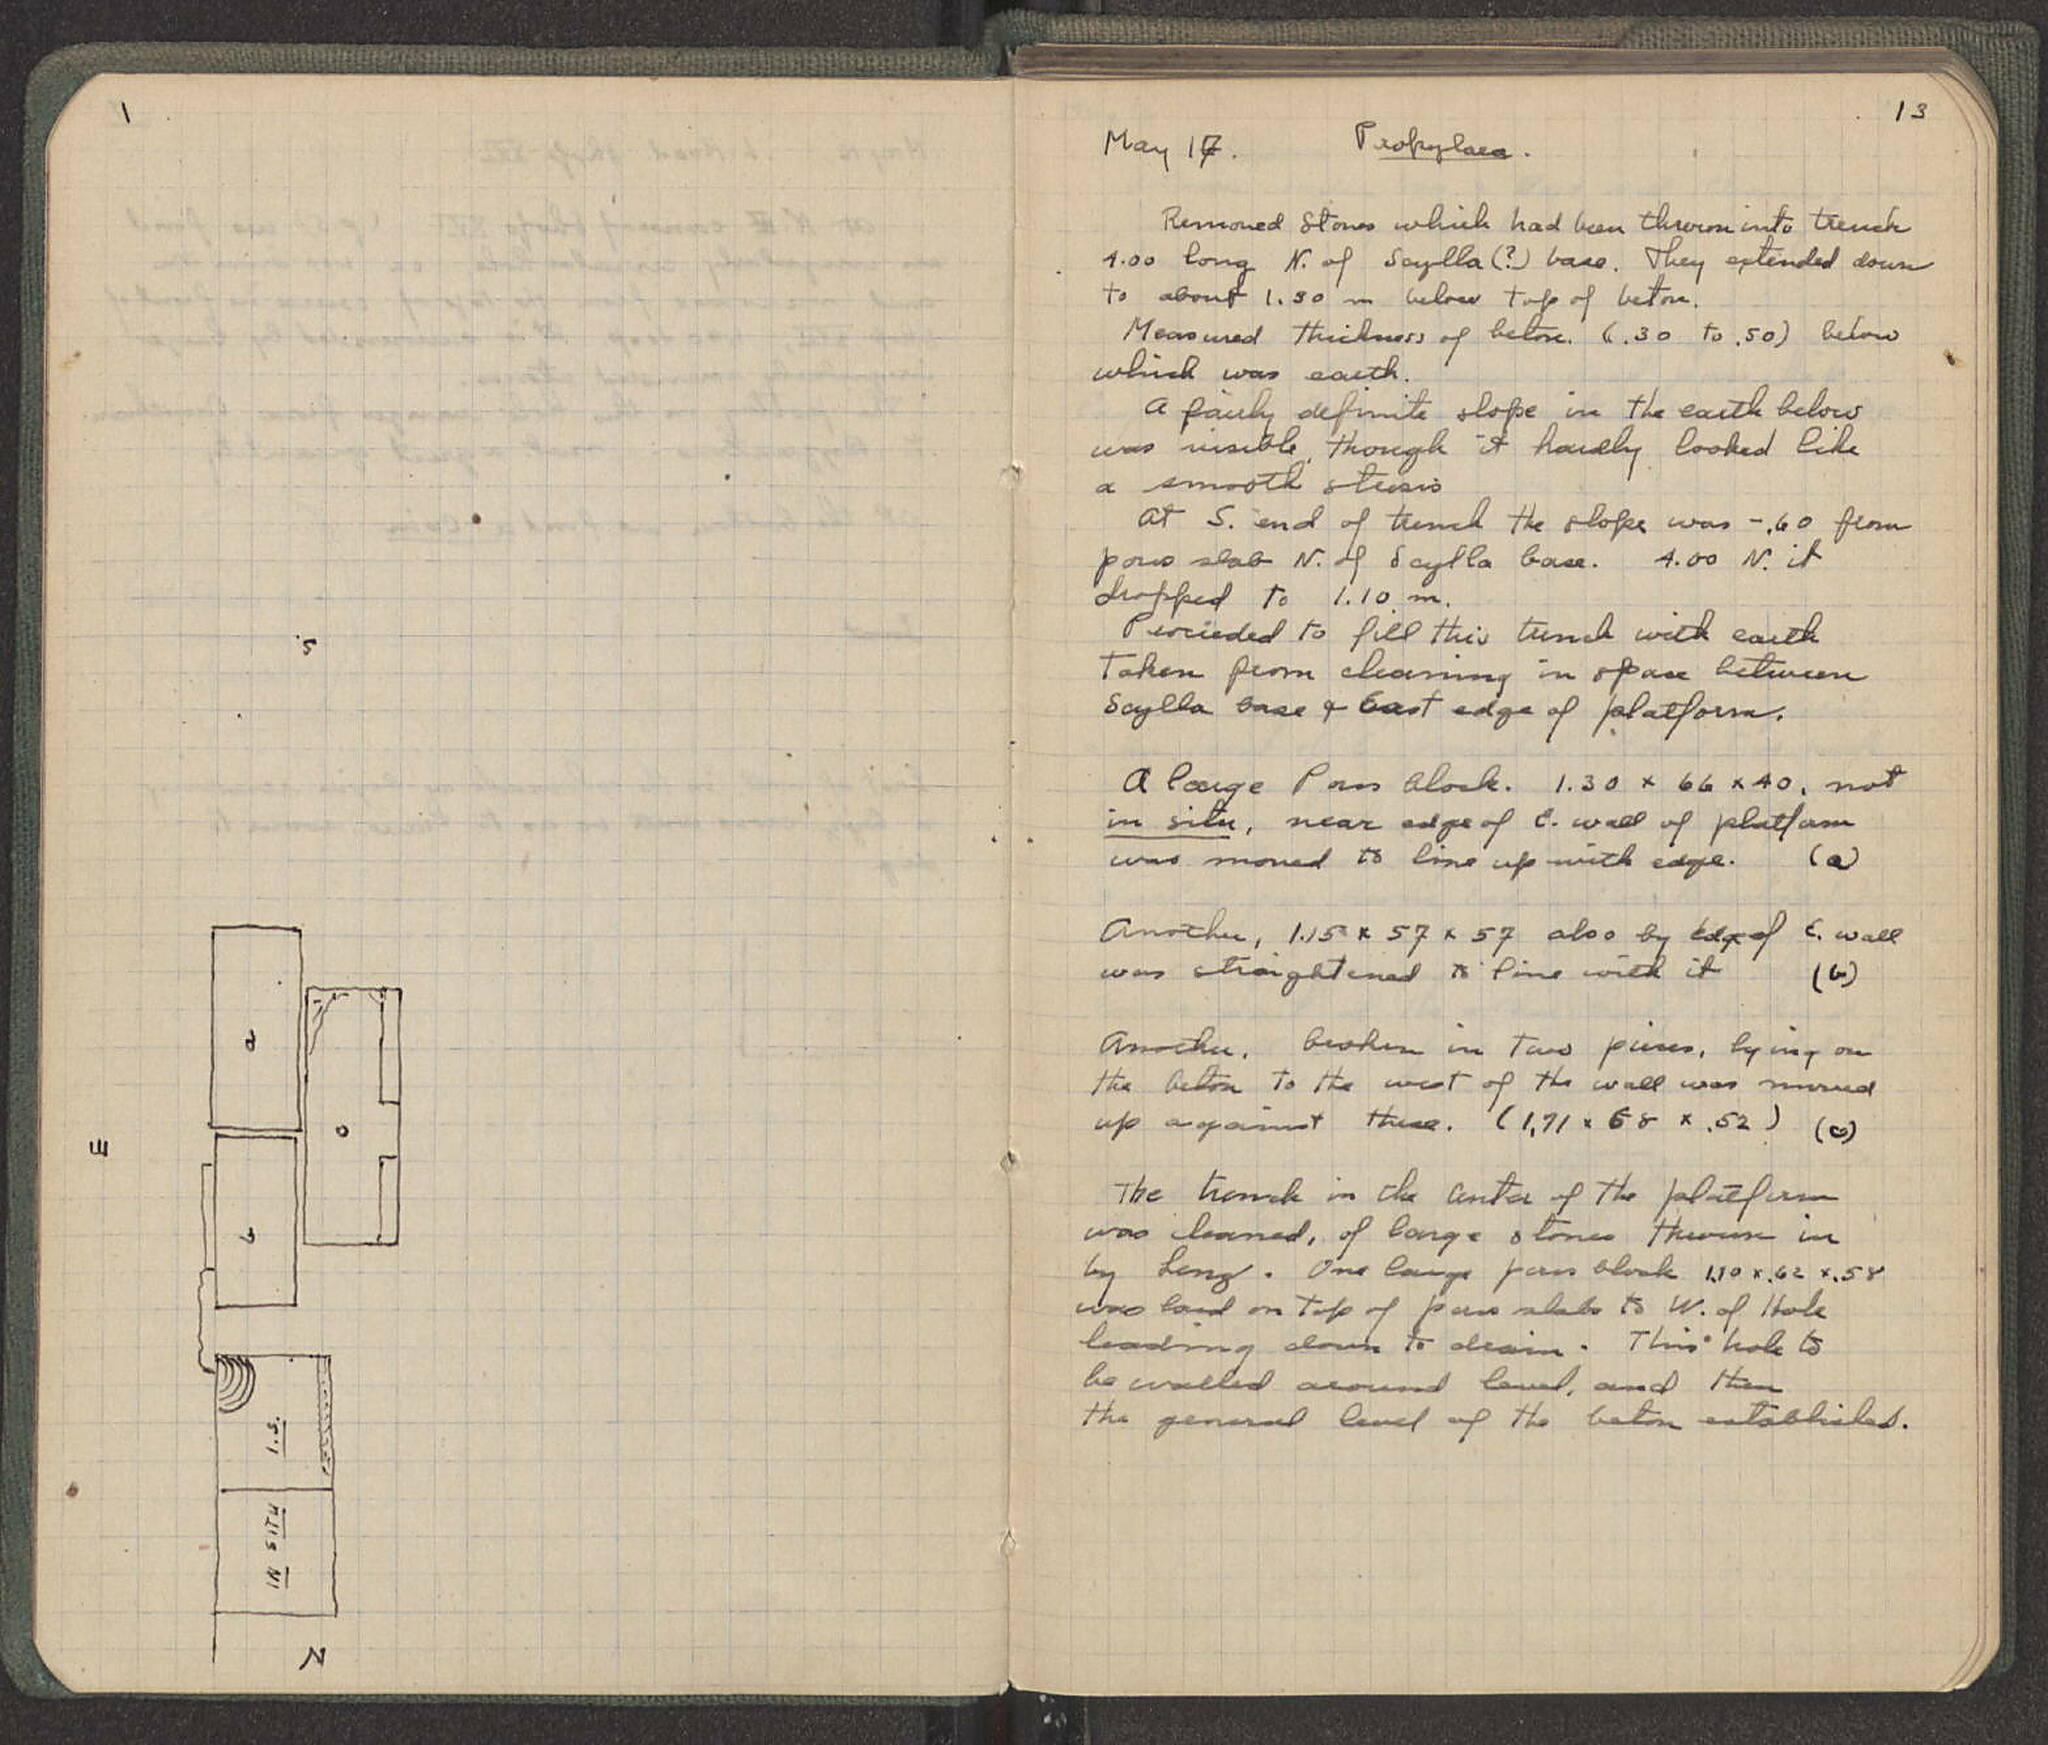 1
S.
a
c
E
b
I.S.
IN SITU
N
13
May 17. Propylaea.
Removed stones which had been thrown into trench
4.00 long N. of Scylla (?) base. They extended down
to about 1.30 m below top of beton.
Measured thickness of beton. (.30 to .50) below
which was earth.
A fairly definite slope in the earth below
was visible, though it hardly looked like
a smooth stereo
At S. end of trench the slope was -.60 from
poros slab N. of Scylla base. 4.00 N. it
dropped to 1.10 m.
Proceeded to fill this trench with earth
taken from cleaning in space between
Scylla base & East edge of platform.
A large Poros block. 1.30 x 66 x 40, not
in situ, near edge of E. wall of platform
was moved to line up with edge. (a)
Another, 1.15 x 57 x 57 also by edge of E. wall
was straightened to line with it (b)
Another, broken in two pieces, lying on
the beton to the west of the wall was moved
up against these. (1.71 x 68 x .52) (c)
The trench in the center of the platform
was cleaned, of large stones thrown in
by . One large poros block 1.10 x .62 x .58
was laid on top of poros slabs to W. of Hole
leading down to drain. This hole to
be walled around level, and then
the general level of the beton established.